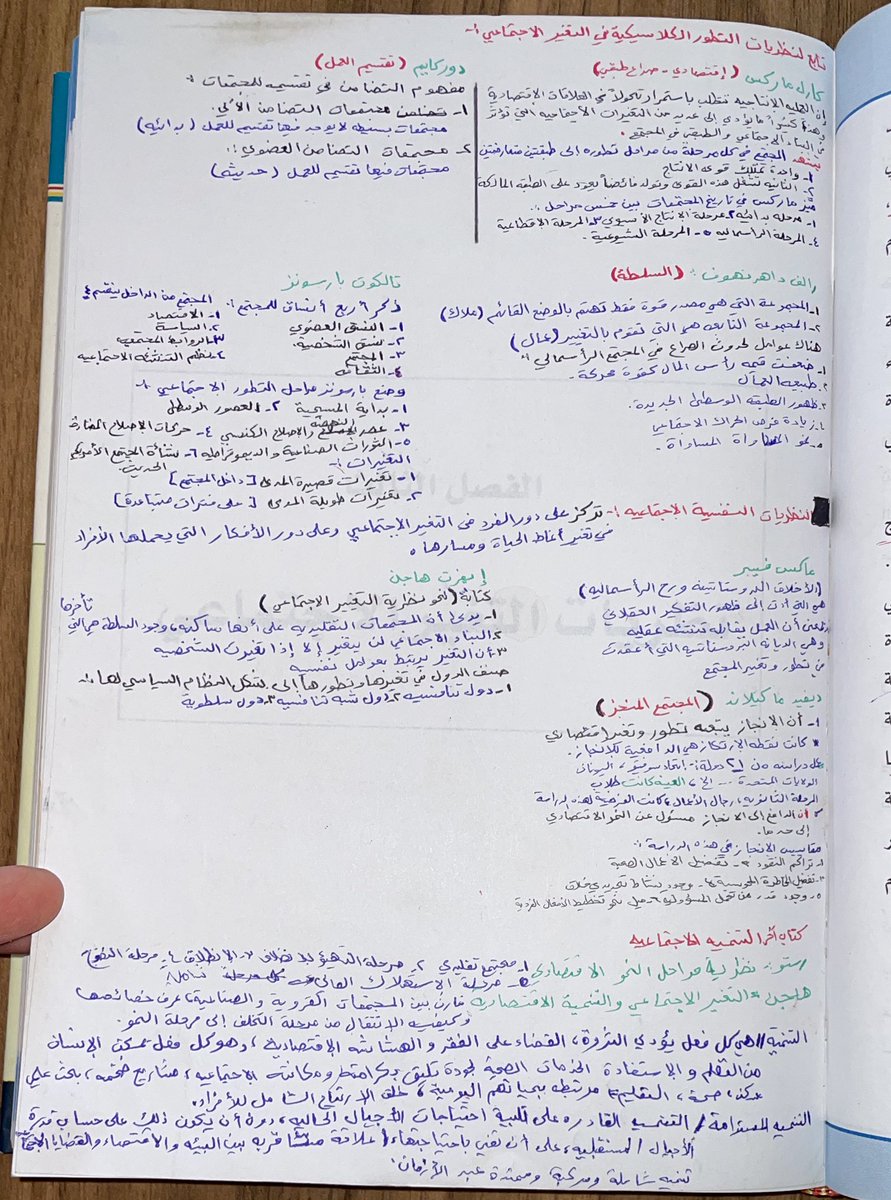 تابع لنظريات التطور الكلاسيكية في التغير الاجتماعي :-
كارل ماركس (إقتصادي - صراع طبقي)
إن العمليه الانتاجيه تتطلب باستمرار تحولاً في العلاقات الاقتصادية
وهذا كثيراً ما يؤدي إلى عديد من التغيرات الاجتماعيه التي تؤثر
في البناء الاجتماعي والطبقي في المجتمع.
المجتمع في كل مرحلة من مراحل تطوره إلى طبقتين متعارضتين
١- واحدة تمتلك قوى الانتاج
٢- الثانيه تشغل هذه القوى وتولد فائضاً يعود على الطبقه المالكة
ميّز ماركس في تاريخ المجتمعات بين خمس مراحل :-
١- مرحله بدائيه ٢- مرحلة الانتاج الآسيوي ٣- المرحلة الاقطاعية
٤- المرحلة الراسماليه ٥- المرحلة الشيوعية.
دوركايم (تقسيم العمل)
مفهوم التضامن في تقسيمه للمجتمعات :-
١- مجتمعات التضامن الآلي:
مجتمعات بسيطه لا يوجد فيها تقسيم للعمل (بدائيه)
٢- مجتمعات التضامن العضوي :-
مجتمعات فيها تقسيم للعمل (حديثه)
رالف داهرندوف :- (السلطة)
١- المجموعة التي هي مصدر قوة فقط تهتم بالوضع القائم (ملاك)
٢- المجموعة التابعه هي التي تقوم بالتغيير (عمال)
هناك عوامل لحدوث الصراع في المجتمع الرأسمالي :-
١- ضعفت قيمه رأس المال كقوة محركة.
٢- طبيعه العمال
٣- ظهور الطبقه الوسطى الجديدة.
٤- زيادة فرص الحراك الاجتماعي
٥- نمو المساواة.
تالكوت بارسونز
ذكر أربع أنساق للمجتمع :-
١- النسق العضوي
٢- نسق الشخصية.
٣- المجتمع
٤- الثقافه
المجتمع من الداخل ينقسم لـ
١- الاقتصاد
٢- السياسة
٣- الروابط المجتمعيه
٤- نظم التنشئه الاجتماعيه
وضع بارسونز مراحل التطور الاجتماعي :-
١- بداية المسيحية ٢- العصور الوسطى
٣- عصر النهضة والاصلاح الكنسي ٤- حركات الاصلاح المضادة
٥- الثورات الصناعية والديموقراطيه ٦- نشأة المجتمع الأمريكي
الحديث.
التغيرات :-
١- تغيرات قصيرة المدى [داخل المجتمع]
٢- تغيرات طويلة المدى [على فترات متباعدة]
النظريات النفسية الاجتماعيه :- تركز على دور الفرد في التغير الاجتماعي وعلى دور الأفكار التي يحملها الأفراد
في تغير أنماط الحياة ومسارها.
ماكس فيبر
(الأخلاق البروستانتية وروح الرأسماليه)
هي التي أدت إلى ظهور التفكير العقلاني
بمعنى أن العمل يقابله تنشئه عقليه
وهي الديانه البروتستانتيه التي
في تطور وتغير المجتمع
إيفرت هاجن
كتابه (نحو نظرية التغيير الاجتماعي)
١- يدعي أن المجتمعات التقليديه على أنها ساكنه، وجود السلطة هي التي تأخرها
٢- البناء الاجتماعي لن يتغير إلا إذا تغيرت الشخصيه
٣- أن التغير يرتبط بعوامل نفسيه
صنف الدول في تغيرها وتطورها إلى لشكل النظام السياسي لها :-
١- دول تنافسيه ٢- دول شبه تنافسيه ٣- دول سلطوية
ديفيد ماكيلاند (المجتمع المنجز)
١- أن الانجاز يتبعه تطور وتغير اقتصادي
* كانت نقطه الارتكاز هي الدافعية للانجاز.
دراسته من ٢١ دولة: اتحاد سوفيتي، اليونان
الولايات المتحدة ... الخ، العينه كانت طلاب
المرحلة الثانويه، رجال الأعمال، كانت الفرضية لهذه الدراسة
أن الدافع إلى الانجاز مسئول عن النمو الاقتصادي
إلى حد ما.
مقاييس الانجاز في هذه الدراسة :-
١- تراكم النقود ٢- تفضيل الاعمال الصعبة
٣- تفضيل المخاطرة المحسوبة ٤- وجود نشاط تجريدي خلاق
٥- وجود قدر من تحمل المسؤولية ٦- ميل نحو تخطيط الأفعال الفردية
كتاب آخر التنميه الاجتماعيه
رستو: نظرية مراحل النمو الاقتصادي ١- مجتمع تقليدي ٢- مرحلة التهيؤ للانطلاق ٣- الانطلاق ٤- مرحلة النضج
٥- مرحلة الاستهلاك العالي
هاجن: التغير الاجتماعي والتنمية الاقتصاديه قارن بين المجتمعات القروية والصناعية، عرف خصائصها
وكيفيه الانتقال من مرحلة التخلف إلى مرحلة النمو.
التنمية/ هي كل فعل يؤدي للثروة، القضاء على الفقر والهشاشه الإقتصادية، وهو كل فعل تمكين الإنسان
من التعلم و الاستفادة الخدمات الصحة لجودة تليق بكرامته ومكانته الاجتماعيه، مشاريع ضخمه، بحث علمي
صحة، التعليم، مرتبطه بحياتهم اليومية، خلق الارتياح الشامل للأفراد.
التنميه المستدامة/ التنميه القادره على تلبية احتياجات الأجيال الحاليه، دون أن يكون ذلك على حساب قدرة
الأجيال المستقبليه، على أن تفي باحتياجتها/ علاقة بين البيئه والاقتصاد والقضايا
تنميه شاملة ومركبة وممتدة عبر الأزمان.